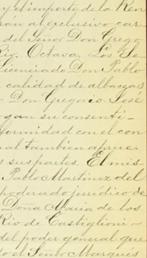 y el importe de la Ren
ran al exclusivo car
del Señor Don Grego
Octava. Los Se
Licenciado Don Pablo
calidad de albaceas
Don Gregorio José
gan su consenti-
formidad con el con
al tambien aprue
sus partes. El mis
Pablo Martinez del
poderado juridico de
Doña Maria de los
Rio de Castiglioni
del poder general que
el Señor Marqués